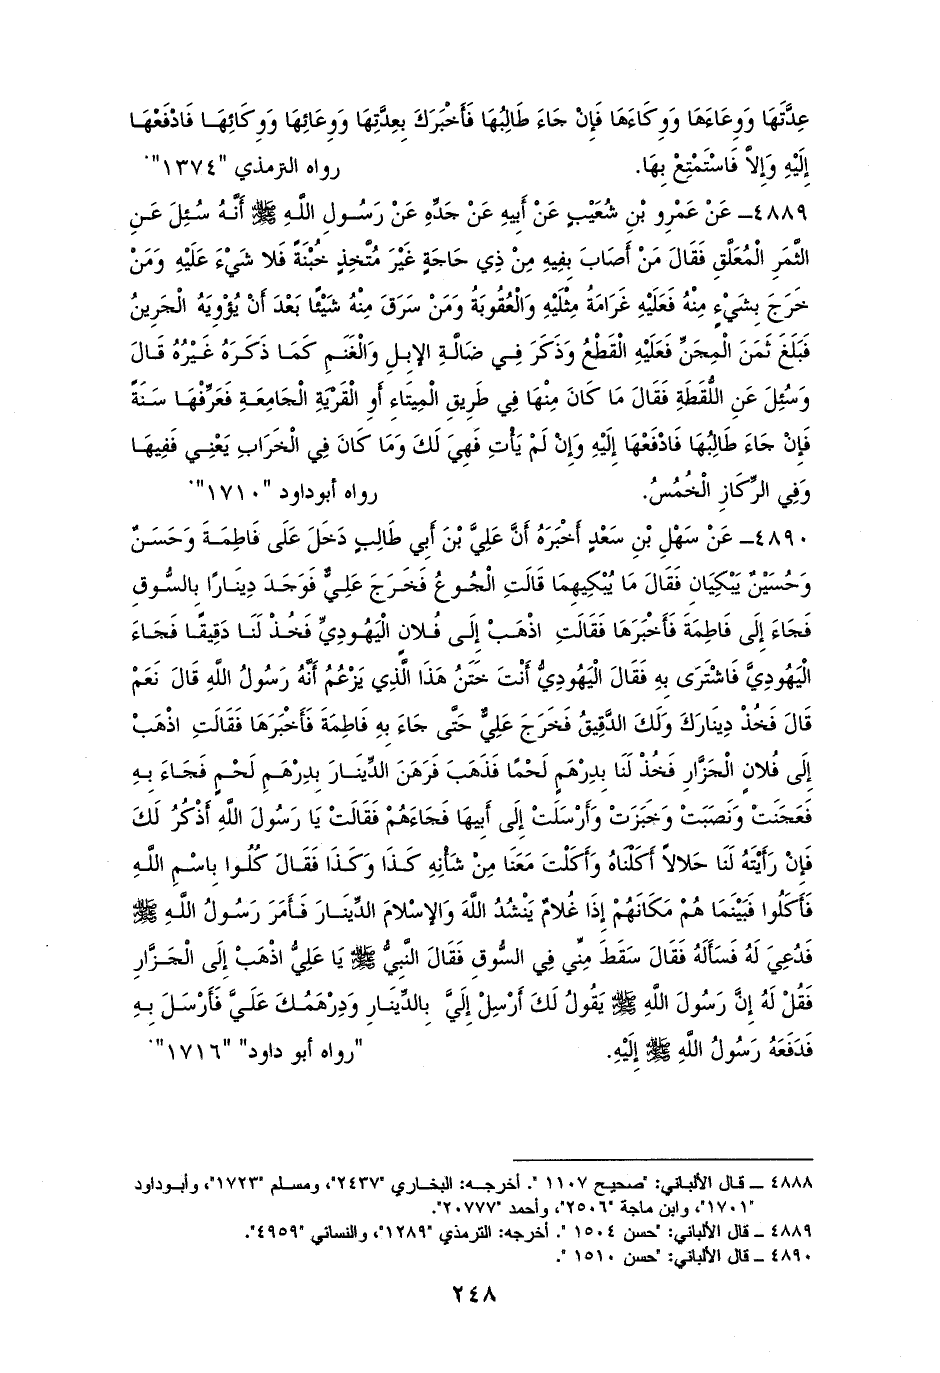 عِدَّتَهَا وَوِعَاءَهَا وَوِكَاءَهَا فَإِنْ جَاءَ طَالِبُهَا فَأَخْبَرَكَ بِعِدَّتِهَا وَوِعَائِهَا وَوِكَائِهَا فَادْفَعْهَا
إِلَيْهِ وَإِلاَّ فَاسْتَمْتِعْ بِهَا. رواه الترمذي "١٣٧٤".
٤٨٨٩ـ عَنْ عَمْرِو بْنِ شُعَيْبٍ عَنْ أَبِيهِ عَنْ جَدِّهِ عَنْ رَسُولِ اللَّهِ ﷺ أَنَّهُ سُئِلَ عَنِ
الثَّمَرِ الْمُعَلَّقِ فَقَالَ مَنْ أَصَابَ بِفِيهِ مِنْ ذِي حَاجَةٍ غَيْرَ مُتَّخِذٍ خُبْنَةً فَلا شَيْءَ عَلَيْهِ وَمَنْ
خَرَجَ بِشَيْءٍ مِنْهُ فَعَلَيْهِ غَرَامَةُ مِثْلَيْهِ وَالْعُقُوبَةُ وَمَنْ سَرَقَ مِنْهُ شَيْئًا بَعْدَ أَنْ يُؤْوِيَهُ الْجَرِينُ
فَبَلَغَ ثَمَنَ الْمِجَنِّ فَعَلَيْهِ الْقَطْعُ وَذَكَرَ فِي ضَالَّةِ الإِبِلِ وَالْغَنَمِ كَمَا ذَكَرَهُ غَيْرُهُ قَالَ
وَسُئِلَ عَنِ اللُّقَطَةِ فَقَالَ مَا كَانَ مِنْهَا فِي طَرِيقِ الْمِيتَاءِ أَوِ الْقَرْيَةِ الْجَامِعَةِ فَعَرِّفْهَا سَنَةً
فَإِنْ جَاءَ طَالِبُهَا فَادْفَعْهَا إِلَيْهِ وَإِنْ لَمْ يَأْتِ فَهِيَ لَكَ وَمَا كَانَ فِي الْخَرَابِ يَعْنِي فَفِيهَا
وَفِي الرِّكَازِ الْخُمُسُ. رواه أبوداود "١٧١٠".
٤٨٩٠ـ عَنْ سَهْلِ بْنِ سَعْدٍ أَخْبَرَهُ أَنَّ عَلِيَّ بْنَ أَبِي طَالِبٍ دَخَلَ عَلَى فَاطِمَةَ وَحَسَنٌ
وَحُسَيْنٌ يَبْكِيَانِ فَقَالَ مَا يُبْكِيهِمَا قَالَتِ الْجُوعُ فَخَرَجَ عَلِيٌّ فَوَجَدَ دِينَارًا بِالسُّوقِ
فَجَاءَ إِلَى فَاطِمَةَ فَأَخْبَرَهَا فَقَالَتِ اذْهَبْ إِلَى فُلانٍ الْيَهُودِيِّ فَخُذْ لَنَا دَقِيقًا فَجَاءَ
الْيَهُودِيَّ فَاشْتَرَى بِهِ فَقَالَ الْيَهُودِيُّ أَنْتَ خَتَنُ هَذَا الَّذِي يَزْعُمُ أَنَّهُ رَسُولُ اللَّهِ قَالَ نَعَمْ
قَالَ فَخُذْ دِينَارَكَ وَلَكَ الدَّقِيقُ فَخَرَجَ عَلِيٌّ حَتَّى جَاءَ بِهِ فَاطِمَةَ فَأَخْبَرَهَا فَقَالَتِ اذْهَبْ
إِلَى فُلانٍ الْجَزَّارِ فَخُذْ لَنَا بِدِرْهَمٍ لَحْمًا فَذَهَبَ فَرَهَنَ الدِّينَارَ بِدِرْهَمِ لَحْمٍ فَجَاءَ بِهِ
فَعَجَنَتْ وَنَصَبَتْ وَخَبَزَتْ وَأَرْسَلَتْ إِلَى أَبِيهَا فَجَاءَهُمْ فَقَالَتْ يَا رَسُولَ اللَّهِ أَذْكُرُ لَكَ
فَإِنْ رَأَيْتَهُ لَنَا حَلالاً أَكَلْنَاهُ وَأَكَلْتَ مَعَنَا مِنْ شَأْنِهِ كَذَا وَكَذَا فَقَالَ كُلُوا بِاسْمِ اللَّهِ
فَأَكَلُوا فَبَيْنَمَا هُمْ مَكَانَهُمْ إِذَا غُلامٌ يَنْشُدُ اللَّهَ وَالإِسْلامَ الدِّينَارَ فَأَمَرَ رَسُولُ اللَّهِ ﷺ
فَدُعِيَ لَهُ فَسَأَلَهُ فَقَالَ سَقَطَ مِنِّي فِي السُّوقِ فَقَالَ النَّبِيُّ ﷺ يَا عَلِيُّ اذْهَبْ إِلَى الْجَزَّارِ
فَقُلْ لَهُ إِنَّ رَسُولَ اللَّهِ ﷺ يَقُولُ لَكَ أَرْسِلْ إِلَيَّ بِالدِّينَارِ وَدِرْهَمُكَ عَلَيَّ فَأَرْسَلَ بِهِ
فَدَفَعَهُ رَسُولُ اللَّهِ ﷺ إِلَيْهِ. "رواه أبو داود" "١٧١٦".
٤٨٨٨ ـ قال الألباني: "صحيح ١١٠٧ ". أخرجه: البخاري "٢٤٣٧"، ومسلم "١٧٢٣"، وأبوداود
"١٧٠١"، وابن ماجة "٢٥٠٦"، وأحمد "٢٠٧٧٧".
٤٨٨٩ ـ قال الألباني: "حسن ١٥٠٤ ". أخرجه: الترمذي "١٢٨٩"، والنسائي "٤٩٥٩".
٤٨٩٠ ـ قال الألباني: "حسن ١٥١٠ ".
٢٤٨